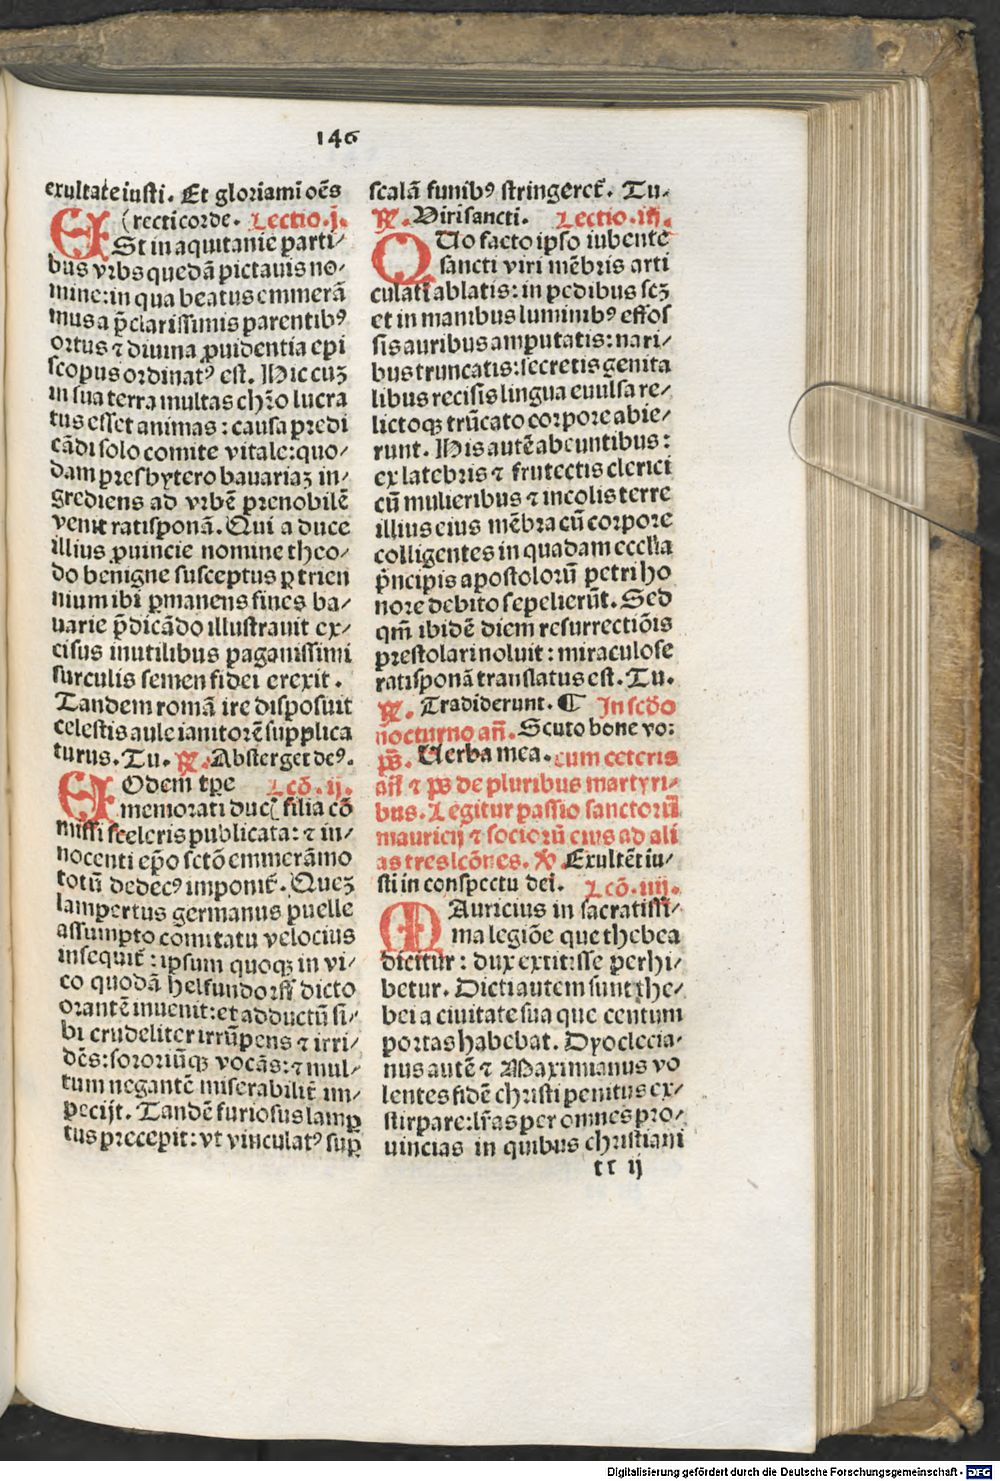 146
exultate iusti. Et gloriami oēs
(recti corde. Lectio.j.
ESt in aquitanie parti⸗
bus vrbs quedā pictauis no⸗
mine: in qua beatus emmerā
mus a p̄clarissimis parentibꝰ
ortus ⁊ diuina ꝓuidentia epi
scopus ordinatꝰ est. Hic cuꝫ
in sua terra multas chr̄o lucra
tus esset animas: causa predi
cādi solo comite vitale: quo⸗
dam presbytero bauariaꝫ in⸗
grediens ad vrbē prenobilē
venit ratisponā. Qui a duce
illius ꝓuincie nomine theo⸗
do benigne susceptus ꝑ trien
nium ibi ꝑmanens fines ba⸗
uarie p̄dicādo illustrauit ex⸗
cisus inutilibus paganissimi
surculis semen fidei erexit.
Tandem romā ire disposuit
celestis aule ianitorē supplica
turus. Tu. ℟. Absterget deꝰ.
EOdem tꝑe Lcō.ij.
memorati ducꝭ filia cō
missi sceleris publicata: ⁊ in⸗
nocenti ep̄o sctō emmerāmo
totū dedecꝰ imponit̄. Queꝫ
lampertus germanus puelle
assumpto comitatu velocius
insequit̄: ipsum quoqꝫ in vi⸗
co quodā helfundorff dicto
orantē inuenit: et adductū si⸗
bi crudeliter irrūpens ⁊ irri⸗
dēs: sororiūqꝫ vocās: ⁊ mul⸗
tum negantē miserabilit̄ im⸗
pecijt. Tandē furiosus lamꝑ
tus precepit: vt vinculatꝰ suꝑ
scalā funibꝰ stringeret̄. Tu.
℟. Viri sancti. Lectio.iij.
QUo facto ipso iubente
sancti viri mēbris arti
culati ablatis: in pedibus scꝫ
et in manibus luminibꝰ effos
sis auribus amputatis: nari⸗
bus truncatis: secretis genita
libus recisis lingua euulsa re⸗
lictoqꝫ trūcato corpore abie⸗
runt. His autē abeuntibus:
ex latebris ⁊ frutectis clerici
cū mulieribus ⁊ incolis terre
illius eius mēbra cū corpore
colligentes in quadam ecclīa
p̄ncipis apostolorū petri ho
nore debito sepelierūt. Sed
qm̄ ibidē diem resurrectiōis
prestolari noluit: miraculose
ratisponā translatus est. Tu.
℟. Tradiderunt. ¶ In scd̄o
nocturno an̄. Scuto bone vo:
ps̄. Uerba mea. cum ceteris
an̄ ⁊ ps̄ de pluribus martyri⸗
bus. Legitur passio sanctorū
mauricij ⁊ sociorū eius ad ali
as tres lcōnes. ℣ Exultēt iu⸗
sti in conspectu dei. Lcō.iiij.
MAuricius in sacratissi⸗
ma legiōe que thebea
dicitur: dux extitisse perhi⸗
betur. Dicti autem sunt the⸗
bei a ciuitate sua que centum
portas habebat. Dyoclecia⸗
nus autē ⁊ Maximianus vo
lentes fidē christi penitus ex⸗
stirpare: lr̄as per omnes pro⸗
uincias in quibus christiani
tt ij
Digitalisierung gefördert durch die Deutsche Forschungsgemeinschaft - DFG